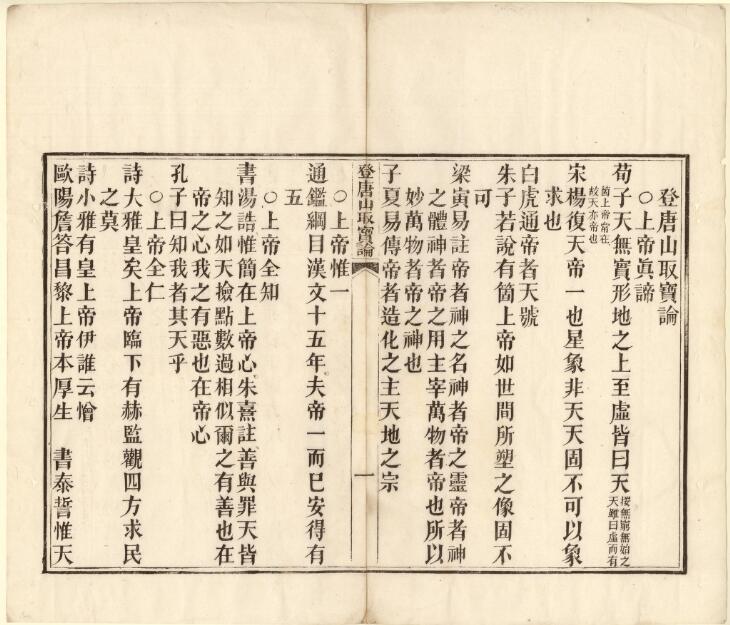 登唐山取寶論
○上帝眞諦
荀子天無實形地之上至虛皆曰天按無窮無始之天雖曰虛而有
箇上帝常在故天亦帝也
宋楊復天帝一也星象非天天固不可以象
求也
白虎通帝者天號
朱子若說有箇上帝如世間所塑之像固不
可
梁寅易註帝者神之名神者帝之靈帝者神
之體神者帝之用主宰萬物者帝也所以
妙萬物者帝之神也
子夏易傳帝者造化之主天地之宗
登唐山取寶論
一
○上帝惟一
通鑑綱目漢文十五年夫帝一而已安得有
五
○上帝全知
書湯誥惟簡在上帝心朱熹註善與罪天皆
知之如天撿點數過相似爾之有善也在
帝之心我之有惡也在帝心
孔子曰知我者其天乎
○上帝全仁
詩大雅皇矣上帝臨下有赫監觀四方求民
之莫
詩小雅有皇上帝伊誰云憎
歐陽詹答昌黎上帝本厚生　書泰誓惟天